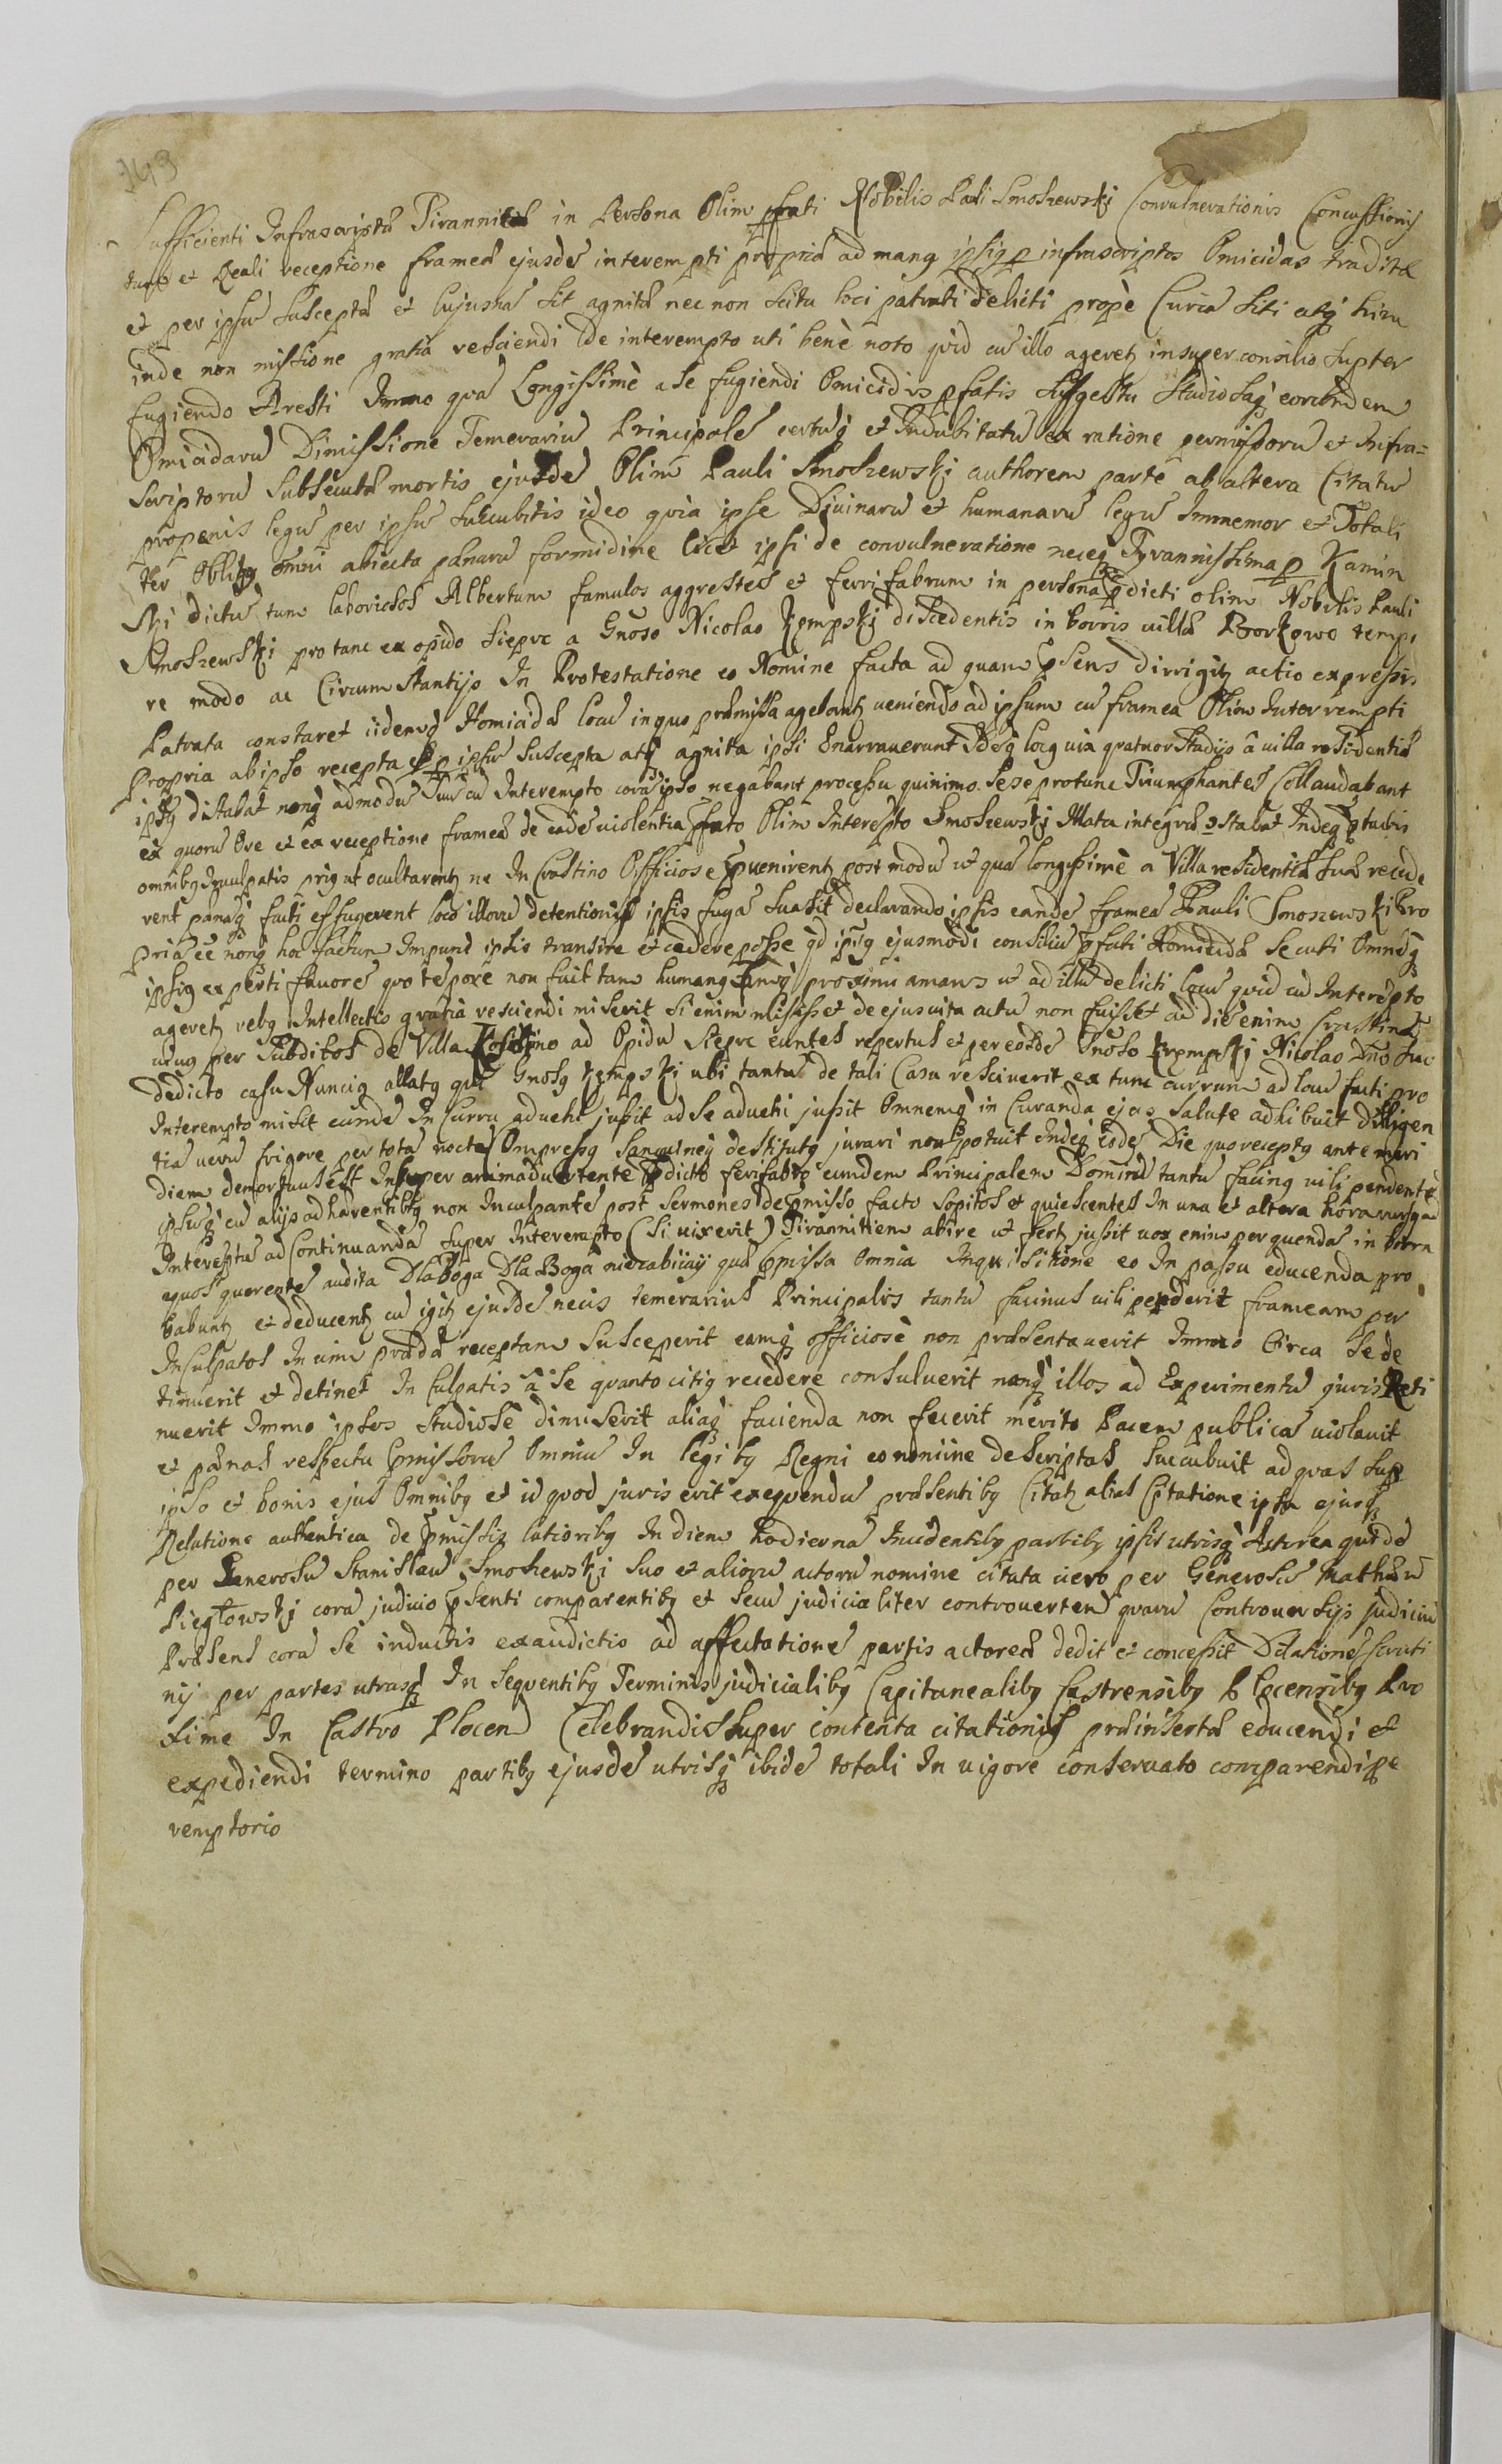 143
Sufficienti Infrascriptæ Tirannitæ in Persona Olim pfati Nobilis Pauli Smoszewskj Convulnerationis Concussionis
et Reali receptione frameæ ejusdē interempti propriæ ad manꝰ ipsiꝰ p infrascriptos Omicidas traditæ
et per ipsū susceptæ et Cujusnā sit agnitæ nec non situ loci patrati delicti propè Curiā siti atq3
inde non missione gratia resciendi de interempto uti benè noto qvid cū illo ageret insuper consilio super
fugiendo Aresti Immo qvā Longissimè a se fugiendi Omicidis pfatis suggestu Studiosaq3 eorundem
Omicidarū Dimissione Temerariū Principalē certūq3 et Indubitatū ex ratione permissorū et Infra=
scriptorū subsecutæ mortis ejusdē Olim Pauli Smoszewskj authorem parte ab altera Citatū
propænis legū per ipsū succubitis ideo qvia ipse Divinarū et humanarū legū Immemor et Totali
ter Oblitꝰ omni abiecta pænarū formidine licet ipsi de convulneratione neceq3 Tyrannissima p Kamin
ski dictū tum laboriosos Albertum famulos aggrestes et ferrifabrum in persona pdicti olim Nobilis Pauli
Smoszewskj protunc ex opido Sieprc a Gnoso Nicolao Kempskj discedentis in borris villæ Borkowo tempo
re modo ac Circumstantijs In Protestatione eo Nomine facta ad quam psens dirrigit actio expressis
Patrata constaret iidemq3 Homicidæ locū in quo præmissa agebant veniendo ad ipsum cū framea Olim Interrempti
Propria ab ipso recepta et p ipsū suscepta atq3 agnita ipsi Enarraverunt Idēq3 locꝰ via qvatuor stadijs â villa residentiæ
ipsiꝰ distabat nonq3 admodū Suū cū Interempto corā ipso negabant processu quinimo sese protunc Triumphantes Collaudabant
ex quorū Ore et ex receptione frameæ de eadē violentia pfato Olim Interēpto Smoszewskj Illata integre Indeq3
omnibꝰ Inculpatis priꝰ ut ocultarent ne In Crastino Officiose pvenirent post modū ut quā longissimè a Villa residentiæ suæ recede
rent pænāq3 facti effugerent loco illorū detentionis ipsis fugā suasit declarando ipsis eandē frameā Pauli Smoszewski Pro
priā eē nonq3 hoc factum Impunè ipsis transire et cedere posse qd ipsiꝰ ejusmodi consiliū pfati Homicidæ secuti Omneq3
ipsiꝰ experti favorē qvo tēpore non fuit tam humanꝰ proximi amans ut ad illū delicti locū qvid cū Interēpto
ageret rebꝰ Intellectis gratia resciendi miserit si enim misisset de ejus vita actū non fuisset ad diē enim Crastinā
per Subditos de Villa ad Opidū Sieprc euntes repertus et per eosdē Gnoso Krempskj Nicolao Dno suo
dedicto casu Nunciꝰ allatꝰ qui Gnosꝰ Kempskj ubi tantū de tali Casu resciverit ex tunc currum ad locū facti pro
Interempto misit eundē In Curru advehi jussit ad se advehi jussit Omnemq3 in Curanda ejus salute adhibuit diligen
tiā verū frigore per totā noctē Ompressꝰ Sangvineq3 destitutꝰ jurari non potuit Indeq3 eodē Die quo receptꝰ ante meri
diem demortuus est Insuper animadvertente pdicto ferifabro eumdem Principalem Dominū tantū facinꝰ vili pendentē
ipsumq3 cū alijs adhærentibꝰ non Inculpantē post sermones de pmisso facto sopitos et quiescentes In una et altera hora rursꝰ ad
Interēptū ad Continuandā super Interempto (si vixerit) Tirannitiem abire ut fert jussit vox enim per quendā in borra
eqvos querente audita Dla Boga Dla Boga niezabijay quæ pmissa Omnia Inquisitione eo In passu educenda pro
babunt et deducent cū igit ejusdē necis temerarius Principalis tantū facinus vili penderit frameam per
Inculpatos In vim prædæ receptam susceperit eamq3 officiosè non præsentaverit Immo Circa se de
tinuerit et detinet In Culpatis â se qvanto citiꝰ recedere consuluerit nonq3 illos ad Experimentū juris Reti
nuerit Immo ipsos Studiosè dimiserit aliaq3 facienda non fecerit mérito Pacem publicā violavit
et pænas respectu pmissorū Omniū In legibꝰ Regni eo nomine descriptas succubuit ad qvas sup
ipso et bonis ejus Omnibꝰ et id qvod juris erit exeqvendū præsentibꝰ Citat alias Citatione ipsa ejusq3
Relatione authentica de pmissis latioribꝰ In diem hodiernā Incidentibꝰ partibꝰ ipsis utrisq3 Actorea quidē
per Generosū Stanislaū Smoszewskj suo et aliorū actorū nomine citata vero per Generosū Mathiā
Pieglowskj corā judicio psenti comparentibꝰ et secū judicialiter controverten qvarū Controversijs Judiciū
Præsens corā se inductis exauditis ad affectationē partis actoreæ dedit et concessit Dilationē scruti
nij per partes utrasq3 In Seqventibꝰ Terminis judicialibꝰ Capitanealibꝰ Castrensibꝰ Plocensibꝰ Pro
xime In Castro Plocen Celebrandis super contenta citationis præinsertæ educendi et
expediendi termino partibꝰ ejusdē utrisq3 ibidē totali In vigore conservato comparendi pe
remptorio